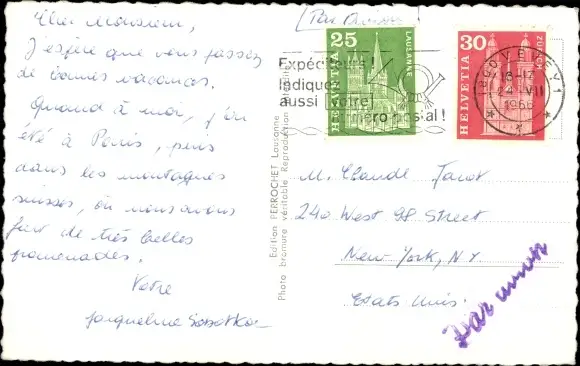 Cher Monsieur,
J'espère que vous passez
de bonnes vacances.
Quant à moi, j'ai
été à Paris, puis
dans les montagnes
suisses, où nous avons
fait de très belles
promenades.
Votre
Jacqueline
25
HELVETIA
LAUSANNE
30
HELVETIA
ZÜRICH
Expéditeurs!
Indiquez
aussi votre
numéro postal!
1800 VEVEY 1
16-17
24 VII
1966
Edition PERROCHET Lausanne
Photo bromure véritable Reproduction interdite
M. Claude Tarot
240 West 98 Street
New-York, N.Y.
Etats Unis.
Par avion